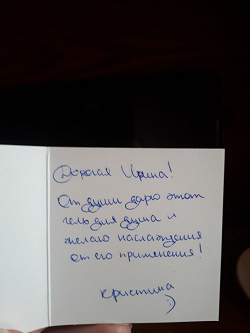 Дорогая Ирина!
От души дарю этот
гель для душа и
желаю наслаждения
от его применения!
Кристина
:)